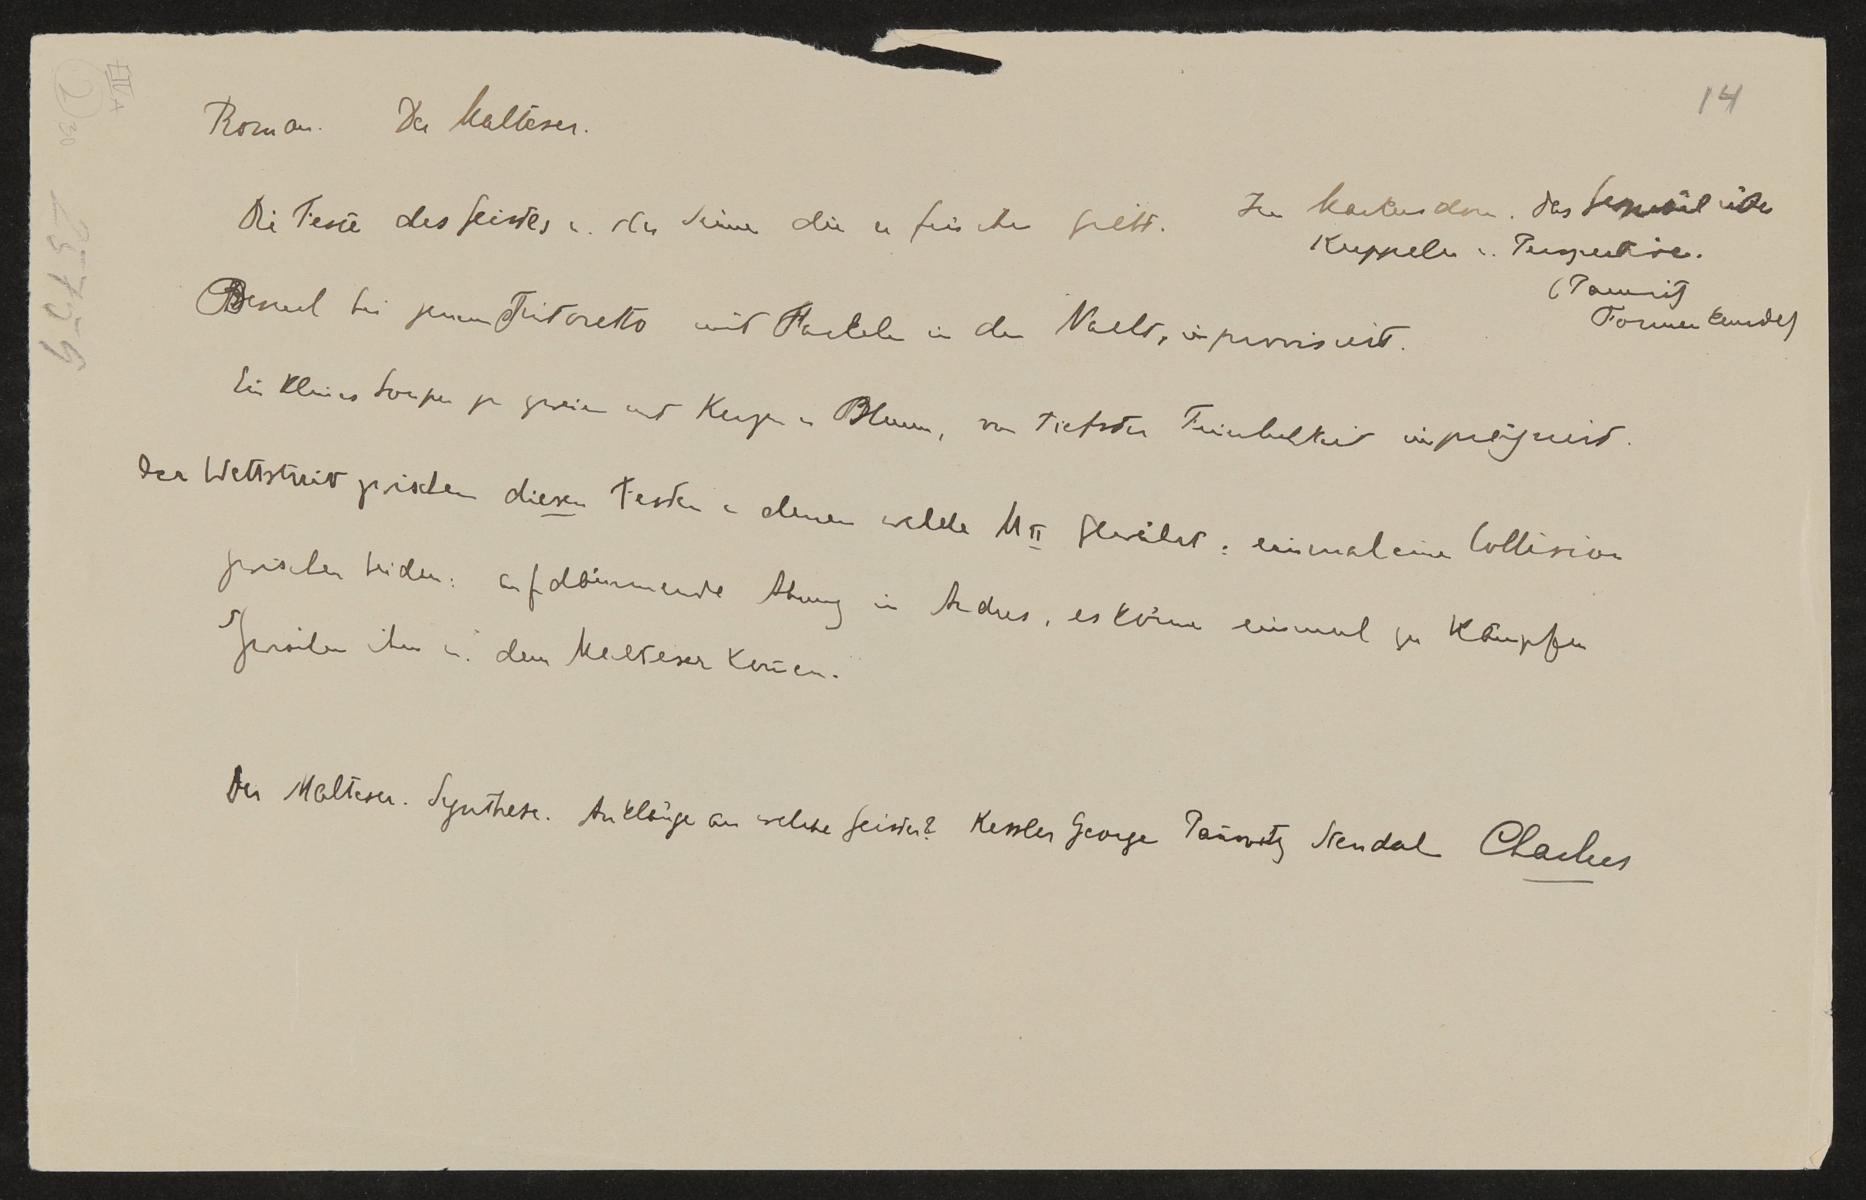 14
Roman. Der Malteser.
Die Feste des Geistes u. der Sinne die er für ihn giebt.
Im Markusdom. Das Gespräch über
Kuppeln u. Perspective.
(Pannwitz
Formenkunde)
Besuch bei jenem Tintoretto mit Fackeln in der Nacht, improvisiert.
Ein kleines Souper zu zweien mit Kerzen u Blumen, von tiefster Feierlichkeit imprägniert.
Der Wettstreit zwischen diesen Festen u denen welche M II gewährt: einmal eine Collision
zwischen beiden: aufdämmernde Ahnung in Andres, es könne einmal zu Kämpfen
zwischen ihm u. dem Malteser kommen.
Der Malteser. Synthese. Anklänge an welche Geister? Kessler George Pannwitz Stendal Charlus